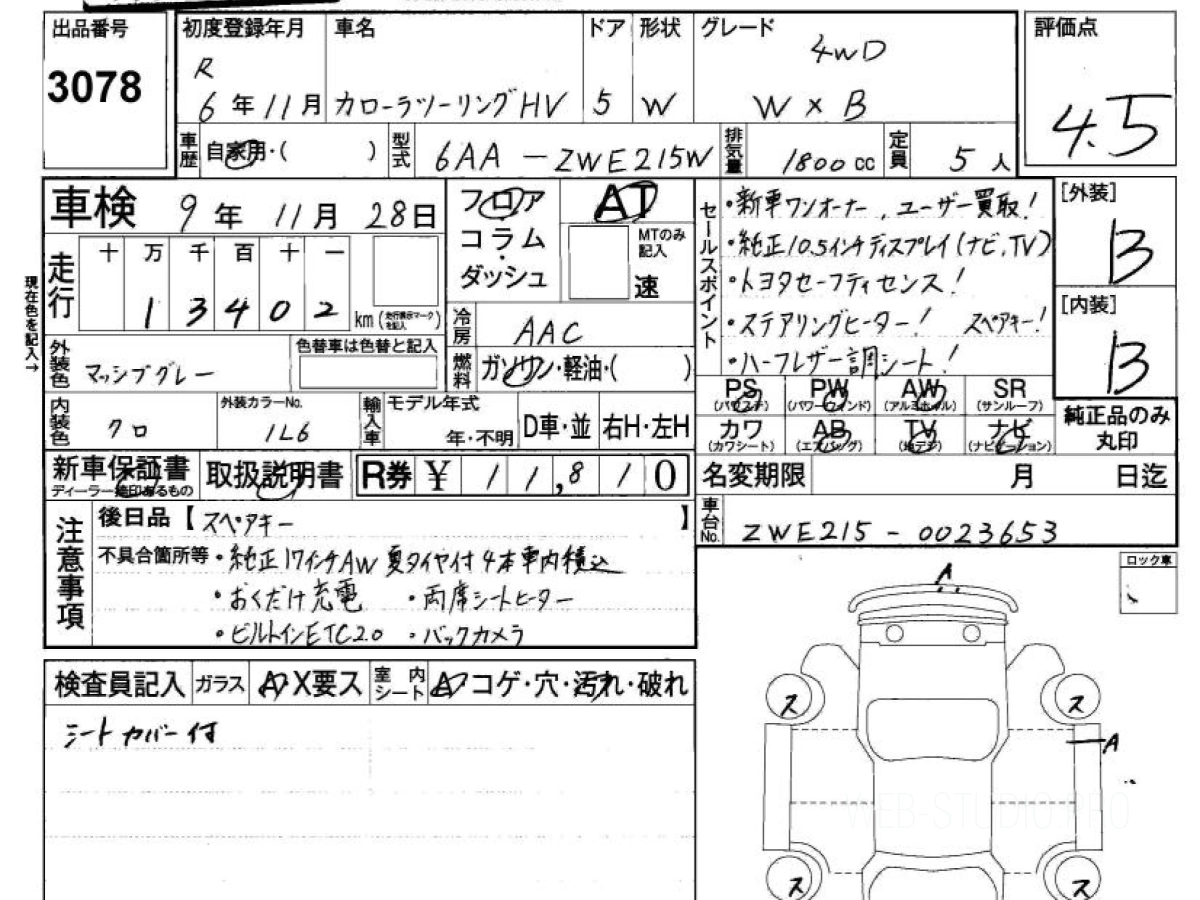 出品番号 初度登録年月 車名 ドア 形状 グレード 評価点
3078 R 6年11月 カローラツーリングHV 5 W 4WD W×B 4.5
車歴 自家用・( ) 型式 6AA-ZWE215W 排気量 1800cc 定員 5人
車検 9年11月28日 フロア AT セールスポイント ・新車ワンオーナー、ユーザー買取! [外装]
コラム・ MTのみ記入 ・純正10.5インチディスプレイ(ナビ、TV) B
走行 十 万 千 百 十 一 ダッシュ 速 ・トヨタセーフティセンス! [内装]
現在色を記入→ 1 3 4 0 2 km(走行表示マークを記入) 冷房 AAC ・ステアリングヒーター! スペアキー! B
外装色 マッシブグレー 色替車は色替と記入 燃料 ガソリン・軽油・( ) ・ハーフレザー調シート!
PS PW AW SR 純正品のみ丸印
(パワステ) (パワーウィンド) (アルミホイル) (サンルーフ)
内装色 クロ 外装カラーNo. 1L6 輸入車 モデル年式 年・不明 D車・並 右H・左H カワ AB TV ナビ
(カワシート) (エアバッグ) (地デジ) (ナビゲーション)
新車保証書 取扱説明書 R券 ¥ 11,810 名変期限 月 日迄
ディーラー捺印あるもの
注意事項 後日品【スペアキー】 車台No. ZWE215-0023653
不具合箇所等 ・純正17インチAW夏タイヤ付4本車内積込 ロック車
・おくだけ充電 ・両席シートヒーター A
・ビルトインETC2.0 ・バックカメラ
検査員記入 ガラス A X要ス 室内シート A コゲ・穴・汚れ・破れ
ス ス
シートカバー付
A
WEB-STUDIO.PRO
ス ス